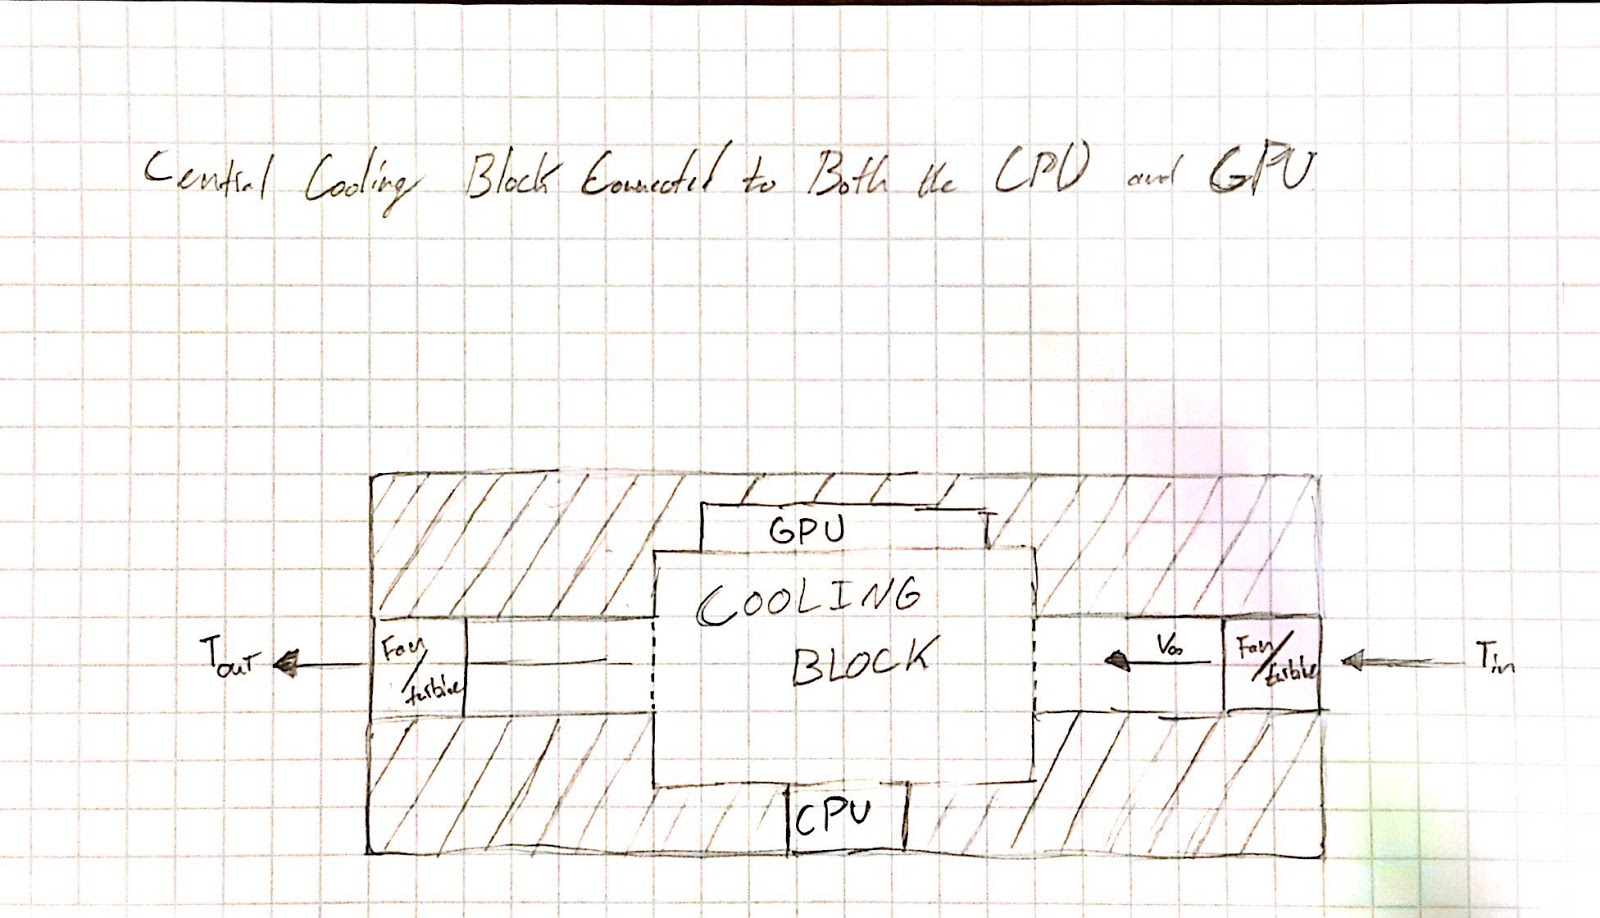 Central Cooling Block Connected to Both the CPU and GPU
GPU
COOLING
BLOCK
Tout
Fan/turbine
V∞
Fan/turbine
Tin
CPU